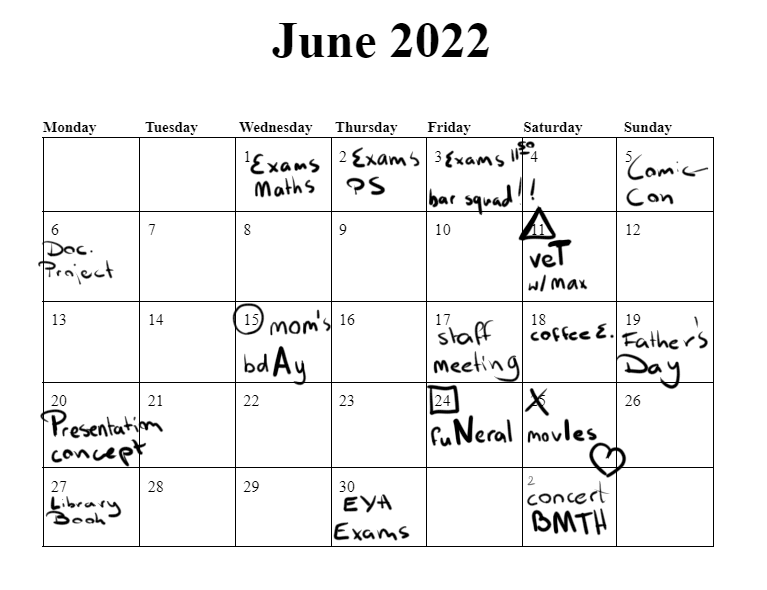 June 2022
Monday Tuesday Wednesday Thursday Friday Saturday Sunday
1 Exams
Maths
2 Exams
PS
3 Exams 11:50
bar squad!!
4
5 Comic
Con
6
Doc.
Project
7
8
9
10
11
veT
w/ Max
12
13
14
15 mom's
bdAy
16
17
staff
meeting
18
coffee E.
19
Father's
Day
20
Presentation
concept
21
22
23
24
fuNeral
25
movIes
26
27
Library
Book
28
29
30
EYA
Exams
2
concert
BMTH